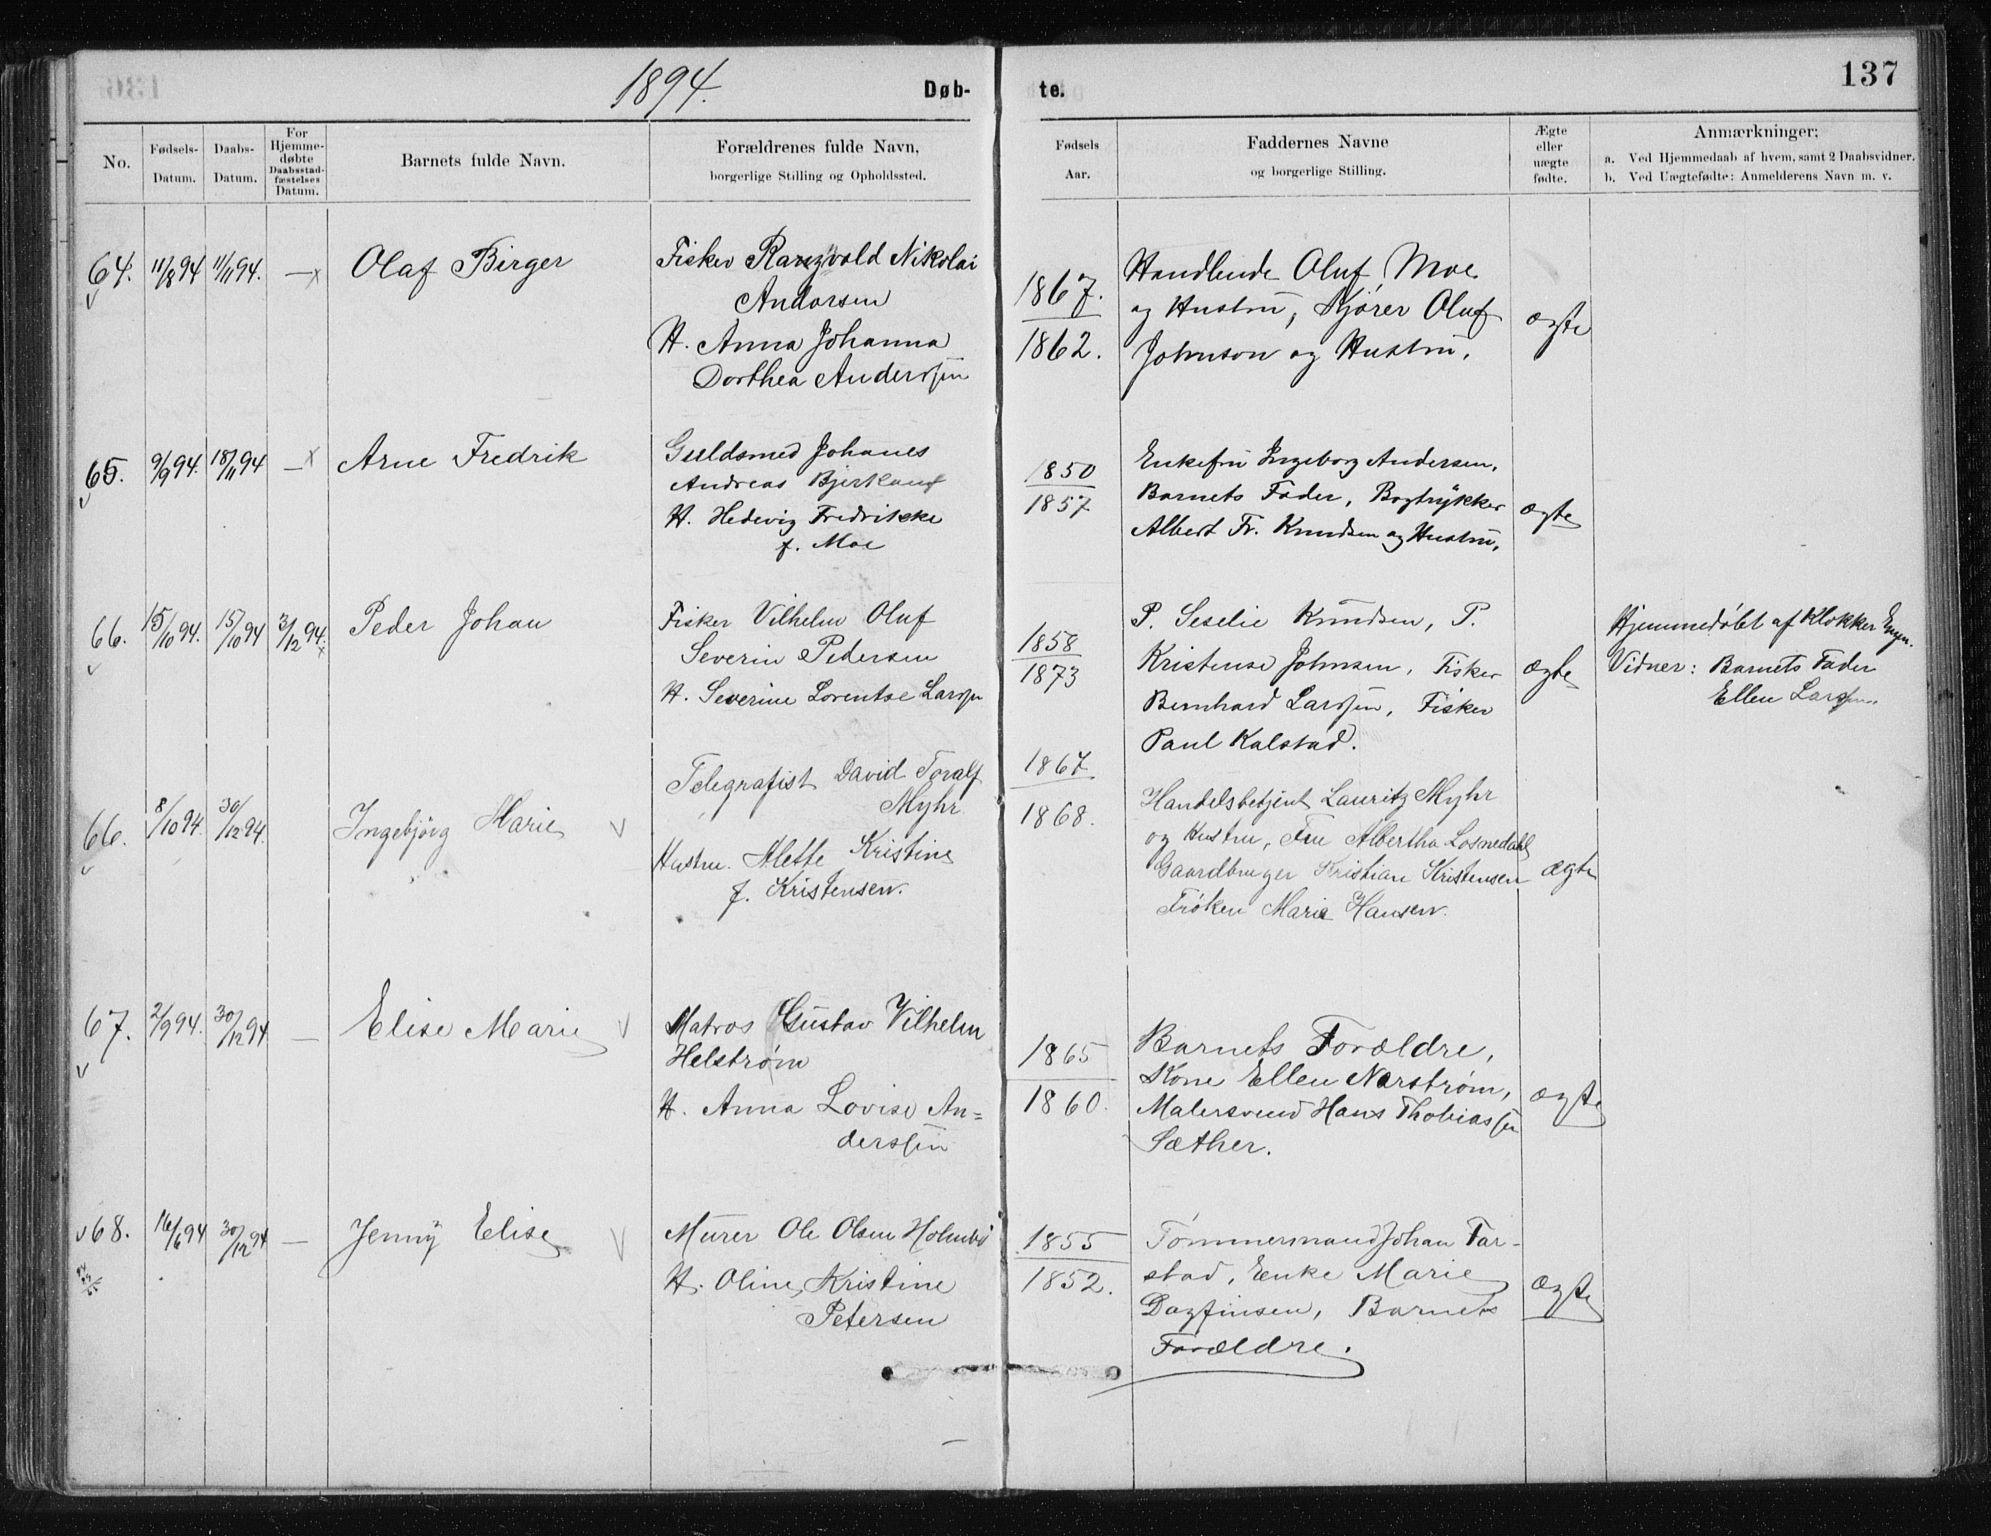 1894.
Døb-
te.
137
No.
Fødsels-
Datum.
Daabs-
Datum.
For
Hjemme-
døbte
Daabsstad-
fæstelses
Datum.
Barnets fulde Navn.
Forældrenes fulde Navn,
borgerlige Stilling og Opholdssted.
Fødsels
Aar.
Faddernes Navne
og borgerlige Stilling.
Ægte
eller
uægte
fødte.
Anmærkninger;
a. Ved Hjemmedaab af hvem, samt 2 Daabsvidner.
b. Ved Uægtefødte: Anmelderens Navn m. v.
64. 11/8 94 11/11 94. — x
Olaf Birger
Fisker Rangvald Nikolai
Andorsen
H. Anna Johanna
Dorthea Anderssen
1867.
1862.
Handlende Oluf Moe
og Hustru, Kjører Oluf
Johnson og Hustru.
ægte
65. 9/9 94. 18/11 94 — x
Arne Fredrik
Guldsmed Johanes
Andreas Bjerkauf
H. Hedevig Fredrikke
f. Moe
1850
1857
Enkefru Ingeborg Andersen,
Barnets Fader, Bogtrykker
Albert Fr. Knudsen og Hustru.
ægte
66. 15/10 94. 15/10 94 3/12 94. x
Peder Johan
Fisker Vilhelm Oluf
Severin Pedersen
H. Severine Lorentse Larssen
1858
1873
P. Seselie Knudsen, P.
Kristense Johnsen, Fisker
Bernhard Larssen, Fisker
Paul Kalstad.
ægte
Hjemmedøbt af Klokker
Vidner: Barnets Fader
Ellen Larssen.
66. 8/10 94. 30/12 94.
Ingebjørg Marie
Telegrafist David Toralf
Myhr
Hustru. Alette Kristine
f. Kristensen.
1867
1868.
Handelsbetjent Lauritz Myhr
og Hustru, Fru Albertha Losnedahl
Gaardbruger Kristian Kristensen
Frøken Marie Hansen.
ægte
67. 2/9 94. 30/12 94 —
Elise Marie
Matros Gustav Vilhelm
Helstrøm
H. Anna Lovise An=
derssen
1865
1860.
Barnets Forældre,
Kone Ellen Norstrøm,
Malersvend Hans Thobiassen
Sæther.
ægte
68. 16/6 94 30/12 94 —
Jenny Elise
Murer Ole Olsen Holmbo
H. Oline Kristine
Petersen
1855
1852.
Tømmermand Johan Far-
stad, Enke Marie
Dagfinsen, Barnets
Forældre.
ægte